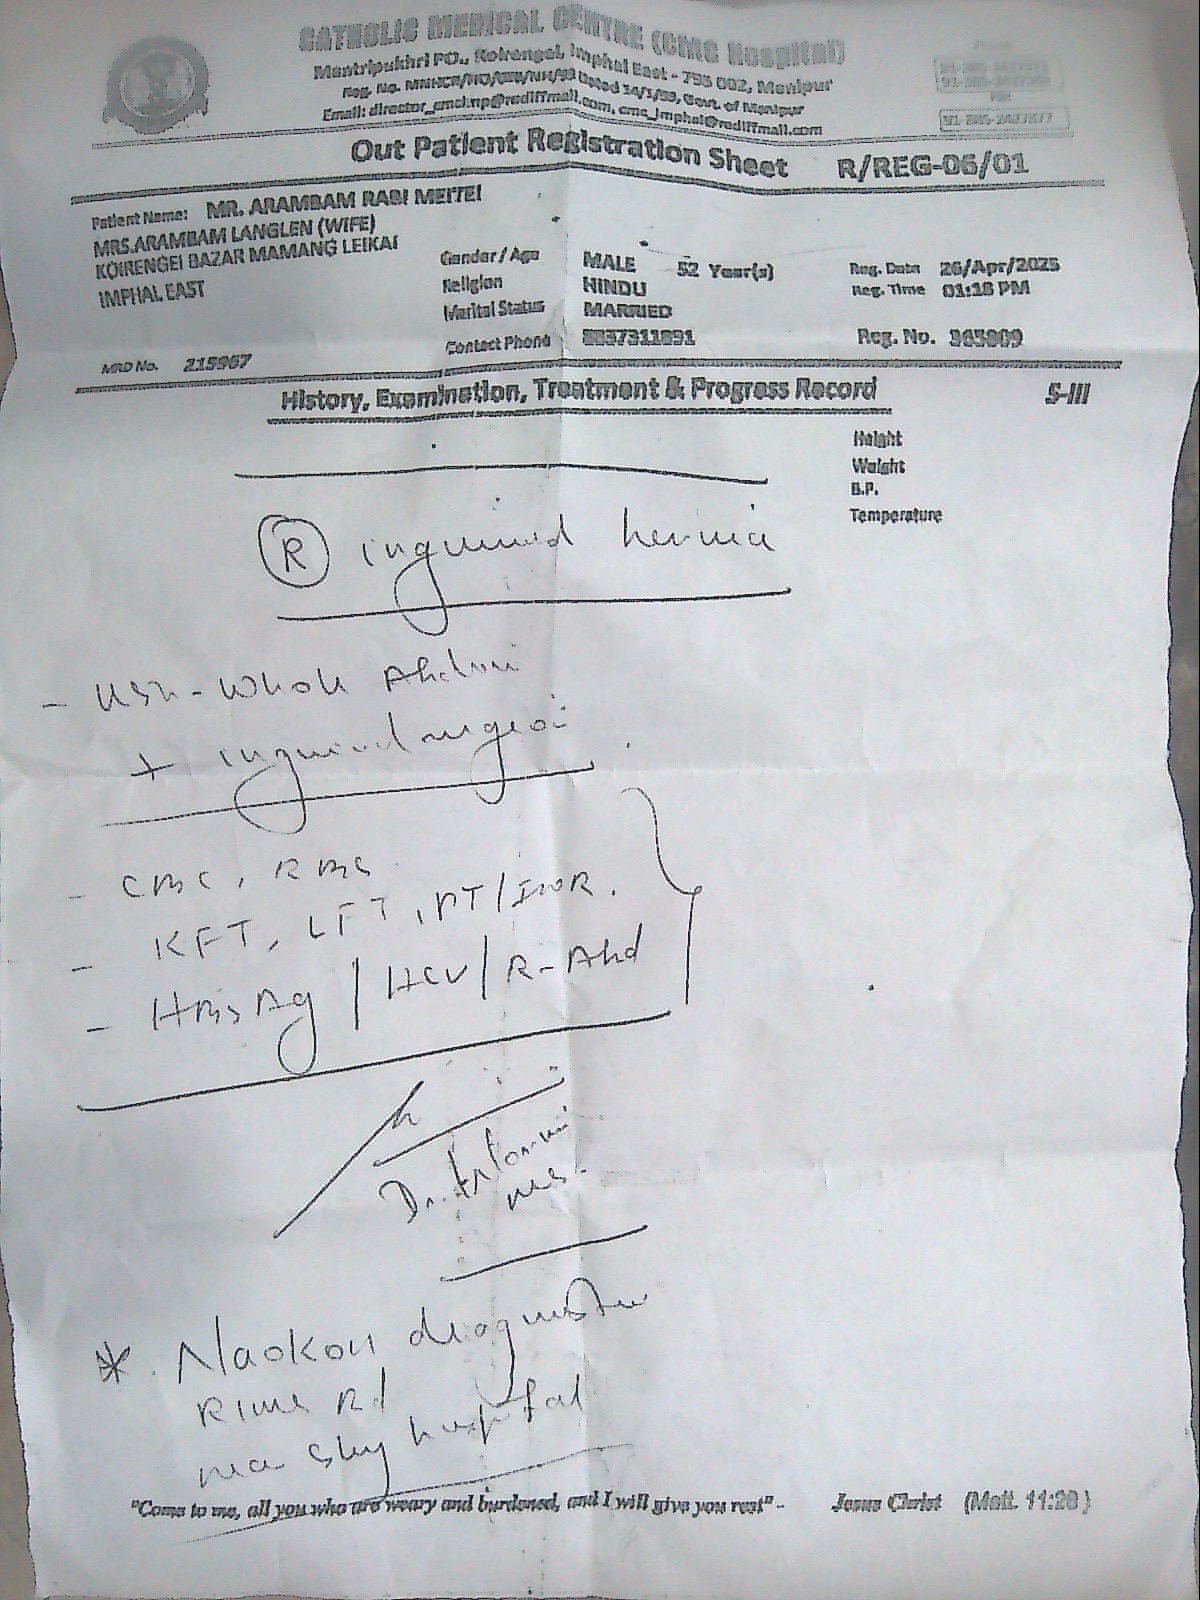 CATHOLIC MEDICAL CENTRE (CMC Hospital)
Mantripukhri PO., Koirengei, Imphal East - 795 002, Manipur
Reg. No. Dated 14/1/99, Govt. of Manipur
Out Patient Registration Sheet R/REG-06/01
Patient Name: MR. ARAMBAM RABI MEITEI
MRS.ARAMBAM LANGLEN (WIFE)
KOIRENGEI BAZAR MAMANG LEIKAI
IMPHAL EAST
Gender / Age MALE 52 Year(s)
Religion HINDU
Marital Status MARRIED
Contact Phone
Reg. Date 26/Apr/2025
Reg. Time 01:18 PM
Reg. No.
MRD No. 215967
History, Examination, Treatment & Progress Record S-III
Height
Weight
B.P.
Temperature
(R) inguinal hernia
- USG - Whole Abdomen
+ inguinal region
- CBC, RBS
- KFT, LFT, PT/INR.
- HBsAg / HCV / R-Abd
Dr.
MS.
* Naokon diagnostic
RIMS Rd
near Sky hospital
"Come to me, all you who are weary and burdened, and I will give you rest" - Jesus Christ (Matt. 11:28)